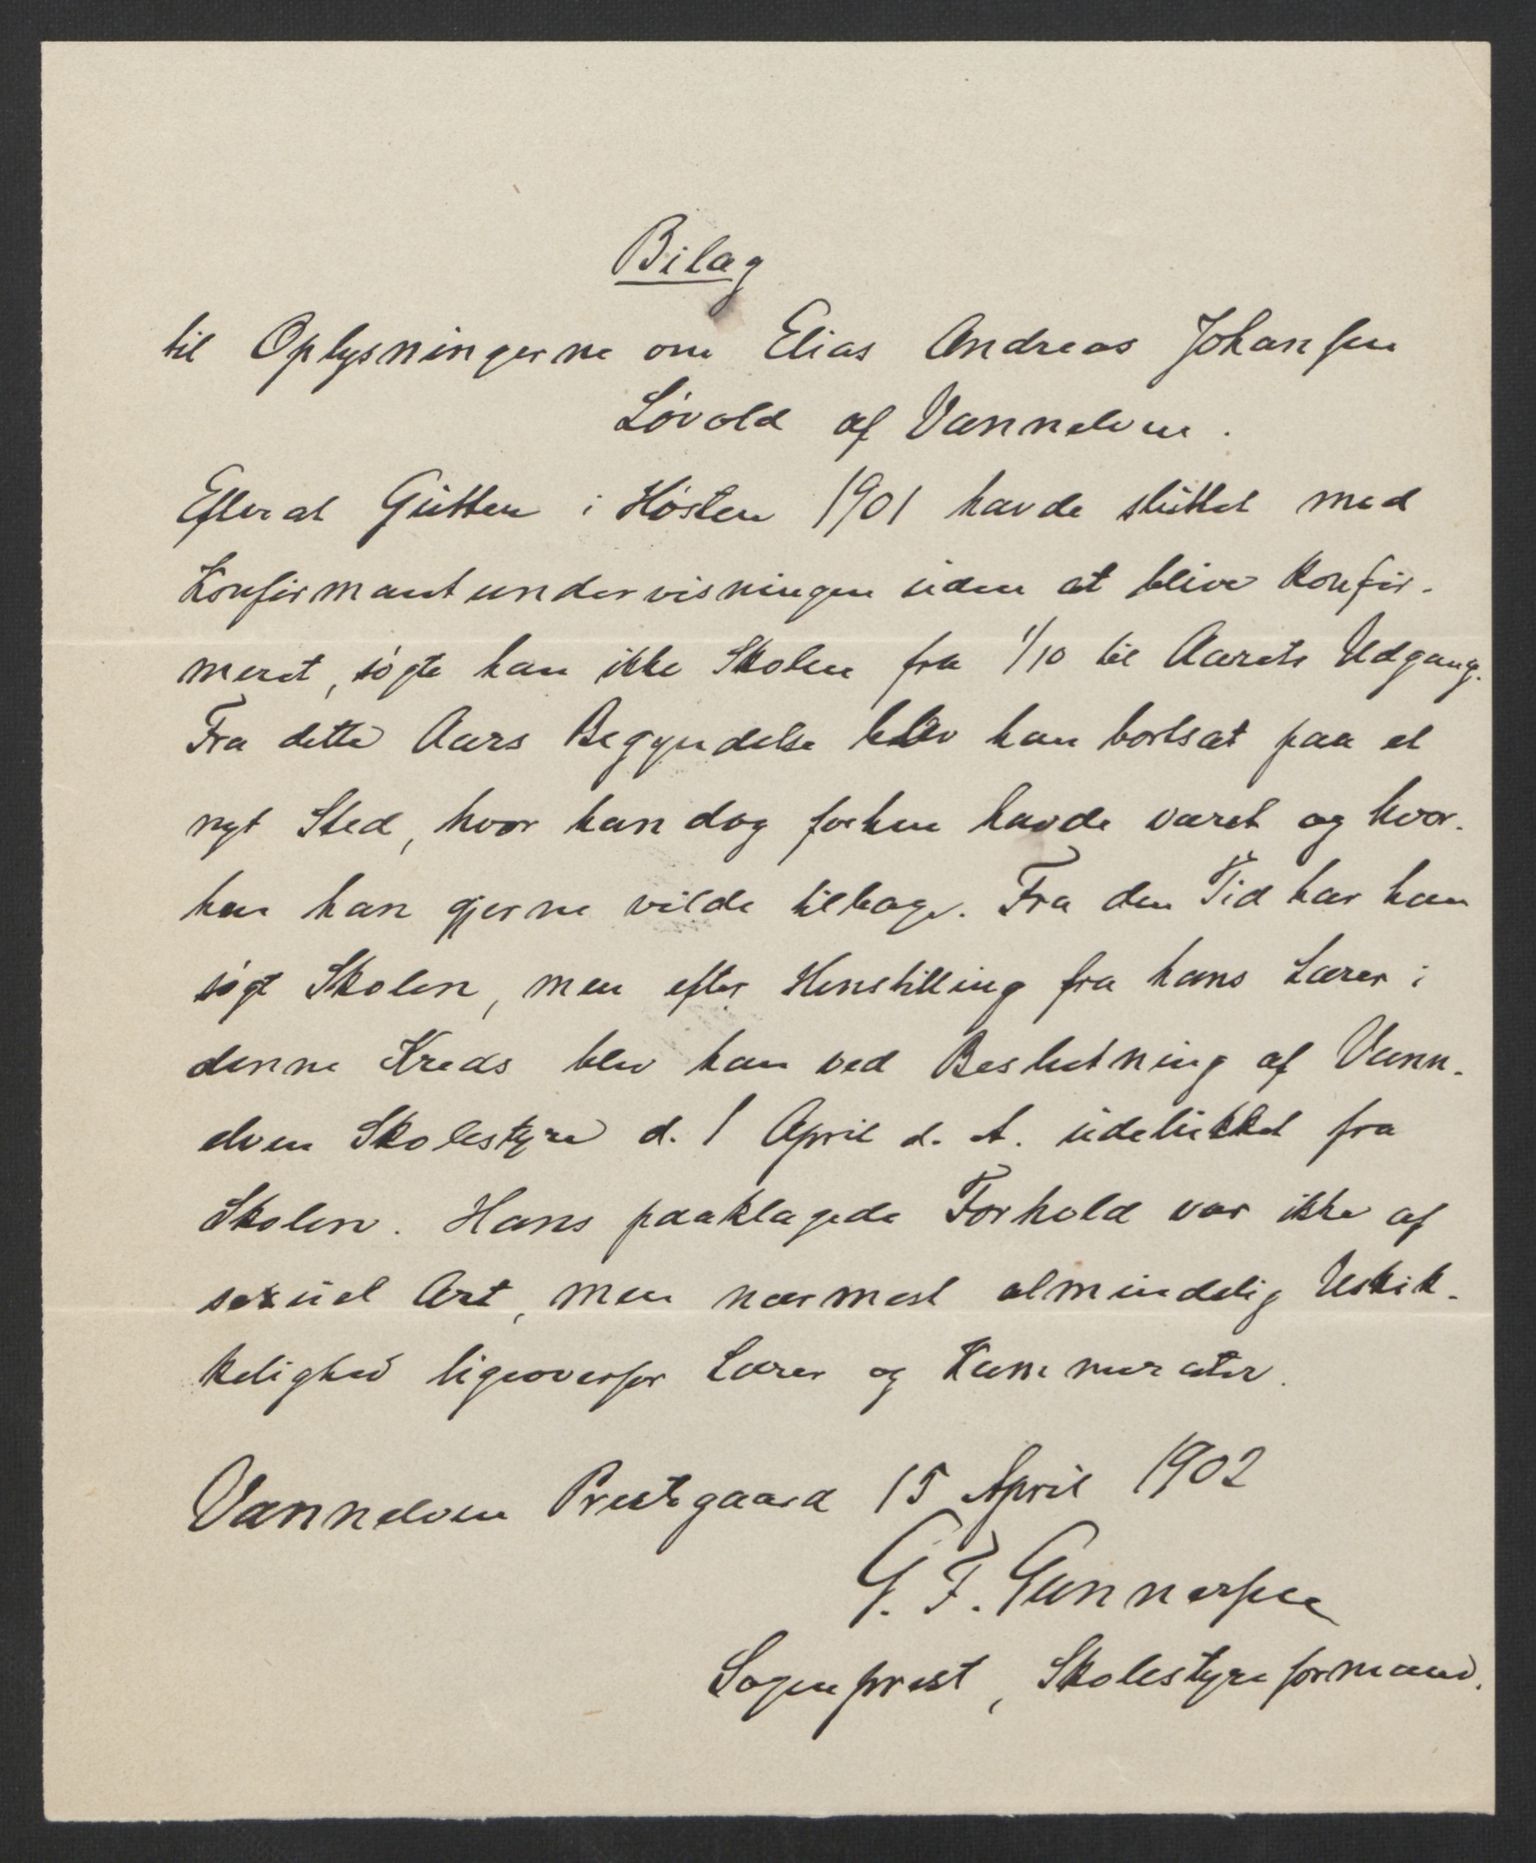 Bilag
til Oplysningerne om Elias Andreas Johansen
Løvold af Vannelven.
Efterat Gutten i Høsten 1901 havde sluttet med
Konfirmantundervisningen uden at blive konfir-
meret, søgte han ikke Skolen fra 1/10 til Aarets Udgang.
Fra dette Aars Begyndelse blev han bortsat paa et
nyt Sted, hvor han dog forhen havde været og hvor-
hen han gjerne vilde tilbage. Fra den Tid har han
søgt Skolen, men efter Henstilling fra hans Lærer i
denne Kreds blev han ved Beslutning af Vann-
elven Skolestyre d. 1 April d. A. udelukket fra
Skolen. Hans paaklagede Forhold var ikke af
sexuel Art, men nærmest almindelig Uskik-
kelighed ligeoverfor Lærer og Kammerater.
Vannelven Prestegaard 15 April 1902
G. F. Gunnersen
Sogneprest, Skolestyreformand.